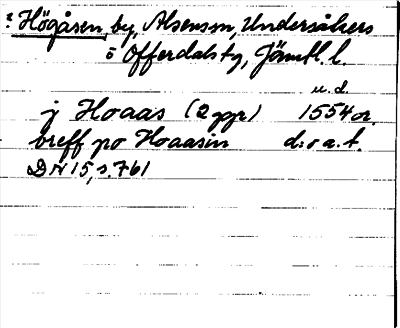 ? Högåsen, by, Alsensn, Undersåkers
o Offerdals tg, Jämtl. l.
u. d.
j Hoaas (2 ggr) 1554 or.
breff po Hoaasin d:o a. t.
DN 15, s. 761